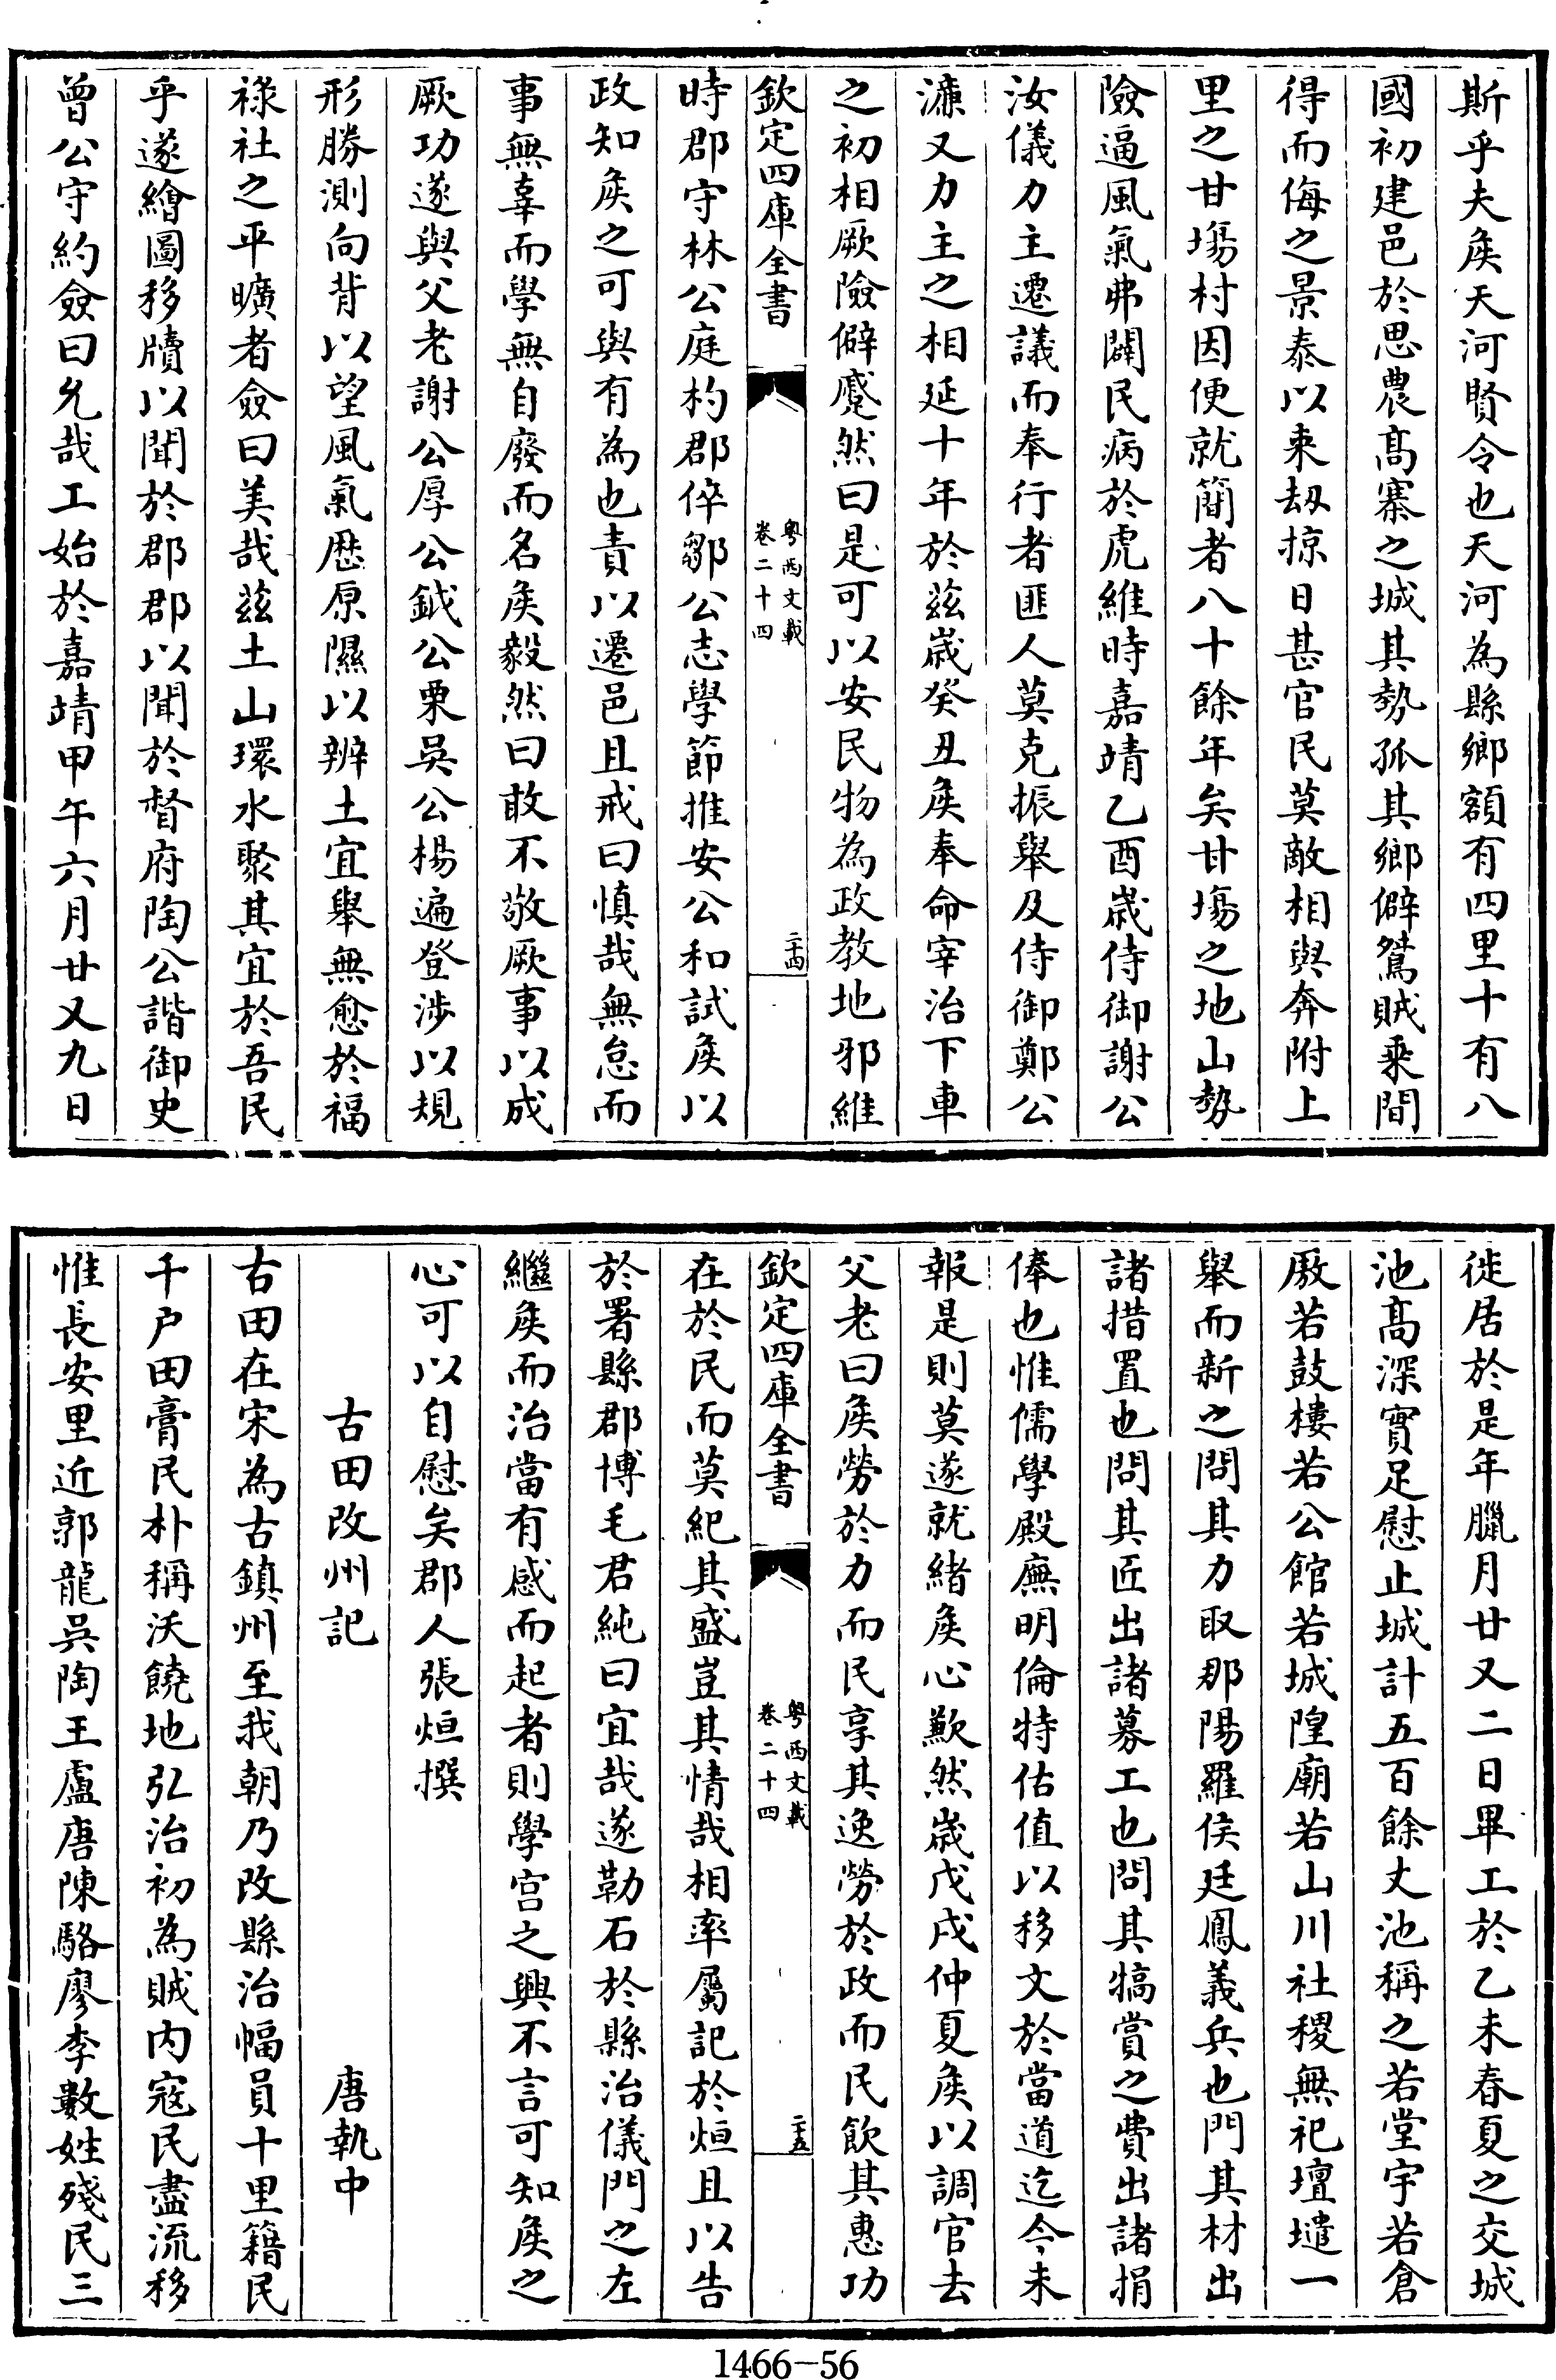 斯乎夫矦天河賢令也天河為縣鄉額有四里十有八
國初建邑於思農髙寨之城其勢孤其鄉僻鴐賊乗間
得而侮之景泰以来刼掠日甚官民莫敵相與奔附上
里之甘塲村因便就簡者八十餘年矣甘塲之地山勢
險逼風氣弗闢民病於虎維時嘉靖乙酉嵗侍御謝公
汝儀力主遷議而奉行者匪人莫克振舉及侍御鄭公
濂又力主之相延十年於兹嵗癸丑矦奉命宰治下車
之初相厥險僻蹙然曰是可以安民物為政教地邪維
欽定四庫全書
粤西文載
卷二十四
二十四
時郡守林公庭杓郡倅鄒公志學節推安公和試矦以
政知矦之可與有為也責以遷邑且戒曰慎哉無怠而
事無辜而學無自廢而名矦毅然曰敢不敬厥事以成
厥功遂與父老謝公厚公鉞公栗吳公楊遍登涉以規
形勝測向背以望風氣歴原隰以辨土宜舉無愈於福
祿社之平曠者僉曰美哉兹土山環水聚其宜於吾民
乎遂繪圖移牘以聞於郡郡以聞於督府陶公諧御史
曾公守約僉曰允哉工始於嘉靖甲午六月廿又九日
徙居於是年臘月廿又二日畢工於乙未春夏之交城
池髙深實足慰止城計五百餘丈池稱之若堂宇若倉
厫若鼓樓若公館若城隍廟若山川社稷無祀壇壝一
舉而新之問其力取那陽羅侯廷鳳義兵也門其材出
諸措置也問其匠出諸募工也問其犒賞之費出諸捐
俸也惟儒學殿廡明倫特估值以移文於當道迄今未
報是則莫遂就緒矦心歉然嵗戊戌仲夏矦以調官去
父老曰矦勞於力而民享其逸勞於政而民飲其惠功
欽定四庫全書
粤西文載
卷二十四
二十五
在於民而莫紀其盛豈其情哉相率屬記於烜且以告
於署縣郡博毛君純曰宜哉遂勒石於縣治儀門之左
繼矦而治當有感而起者則學宫之興不言可知矦之
心可以自慰矣郡人張烜撰
古田改州記 唐執中
古田在宋為古鎮州至我朝乃改縣治幅員十里籍民
千户田膏民朴稱沃饒地弘治初為賊内寇民盡流移
惟長安里近郭龍吳陶王盧唐陳駱廖李數姓殘民三
1466-56